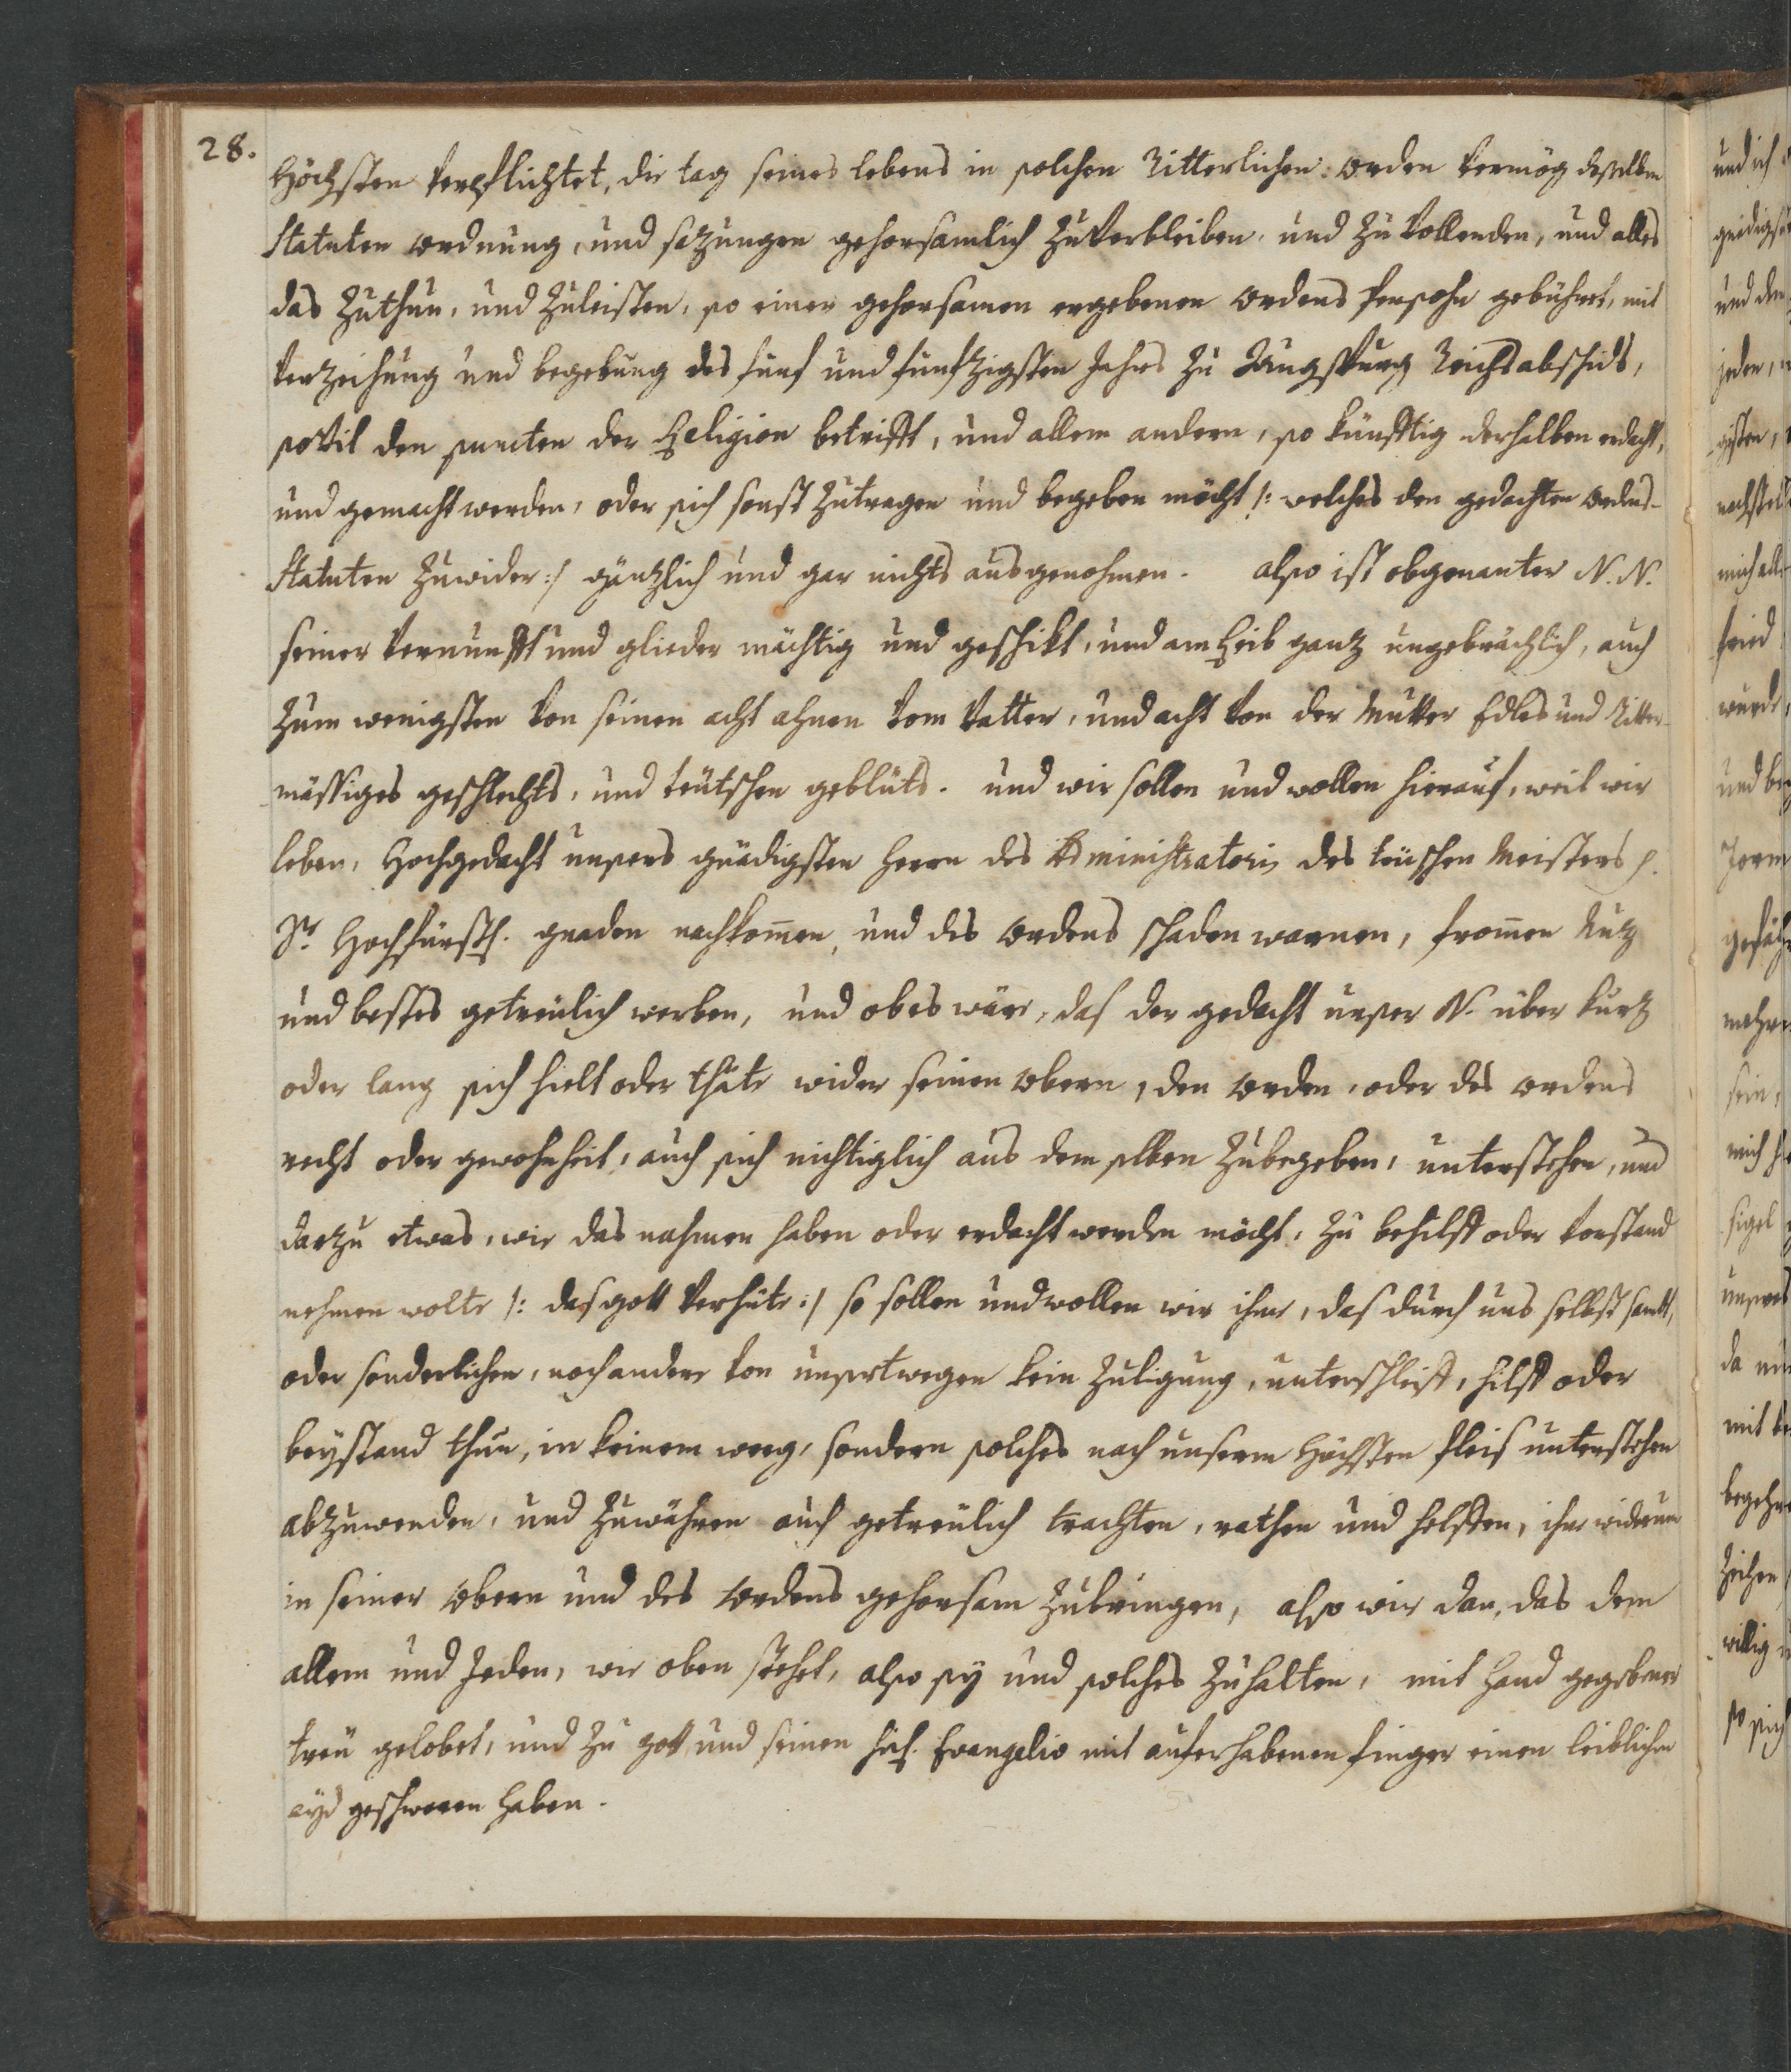 28.
Höchsten verpflichtet, die tag seines lebens in solchen Ritterlichen orden vermög deßelben
Statuten ordnung, und sazungen gehorsamlich zuverbleiben, und zu vollenden, und alles
das zuthun, und zuleisten, so einer gehorsamen ergebenen ordens Persohn gebühret, mit
verzeihung und begebung des fünf und fünfzigsten Jahrs zu Augspurg Reichsabschids,
sovil den puncten der Religion betrifft, und allem andern, so künfftig derhalben erdacht,
und gemacht werden, oder sich sonst zutragen und begeben möcht /: welches den gedachten ordens-
Statuten zuwider :/ gänzlich und gar nichts ausgenohmen. also ist obgenanter N. N.
seiner vernunfft und glieder mächtig und geschikt, und am Leib ganz ungebrächlich, auch
zum wenigsten von seinen acht ahnen vom vatter, und acht von der Mutter Edles und Ritter-
mässiges geschlechts, und teutschen geblüts. und wir sollen und wollen hierauf, weil wir
leben, Hochgedacht unsers gnädigsten Herrn des Administratoris des teüschen Meisters p.
Sr Hochfürstl. gnaden nachkom̄en, und des ordens schaden warnen, from̄en Nuz
und bestes getreülich werben, und ob es wäre, daß der gedacht unser N. über kurz
oder lang sich hielt oder thäte wider seinen obern, den orden, oder des ordens
recht oder gewohnheit, auch sich nichtiglich aus dem selben zubegeben, unterstehen, und
darzu etwas, wie das nahmen haben oder erdacht werden möcht, zu behilff oder vorstand
nehmen wolte /: das gott verhüte :/ so sollen und wollen wir ihme, das durch uns selbst samt,
oder sonderlichen, noch andere von unsertwegen kein zuligung, unterschleiff, hilff oder
beystand thun, in keinem weeg, sondern solches nach unserm Höchsten fleis unterstehen
abzuwenden, und zuwähren auch getreülich trachten, rathen und helffen, ihne widerum
in seiner obern und des ordens gehorsam zubringen, also wir dan, das dem
allem und Jeden, wie oben stehet, also sey und solches zuhalten, mit Hand gegebener
treü gelobet, und zu gott, und seinen heil. Evangelio mit auferhabenen finger einen leiblichen
ayd geschworen haben.